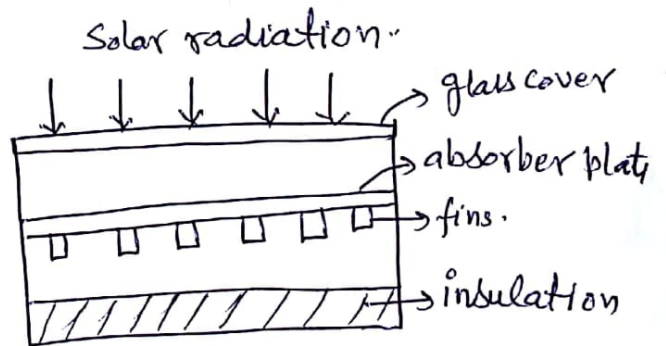 Solar radiation.
glass cover
absorber plate
fins.
insulation